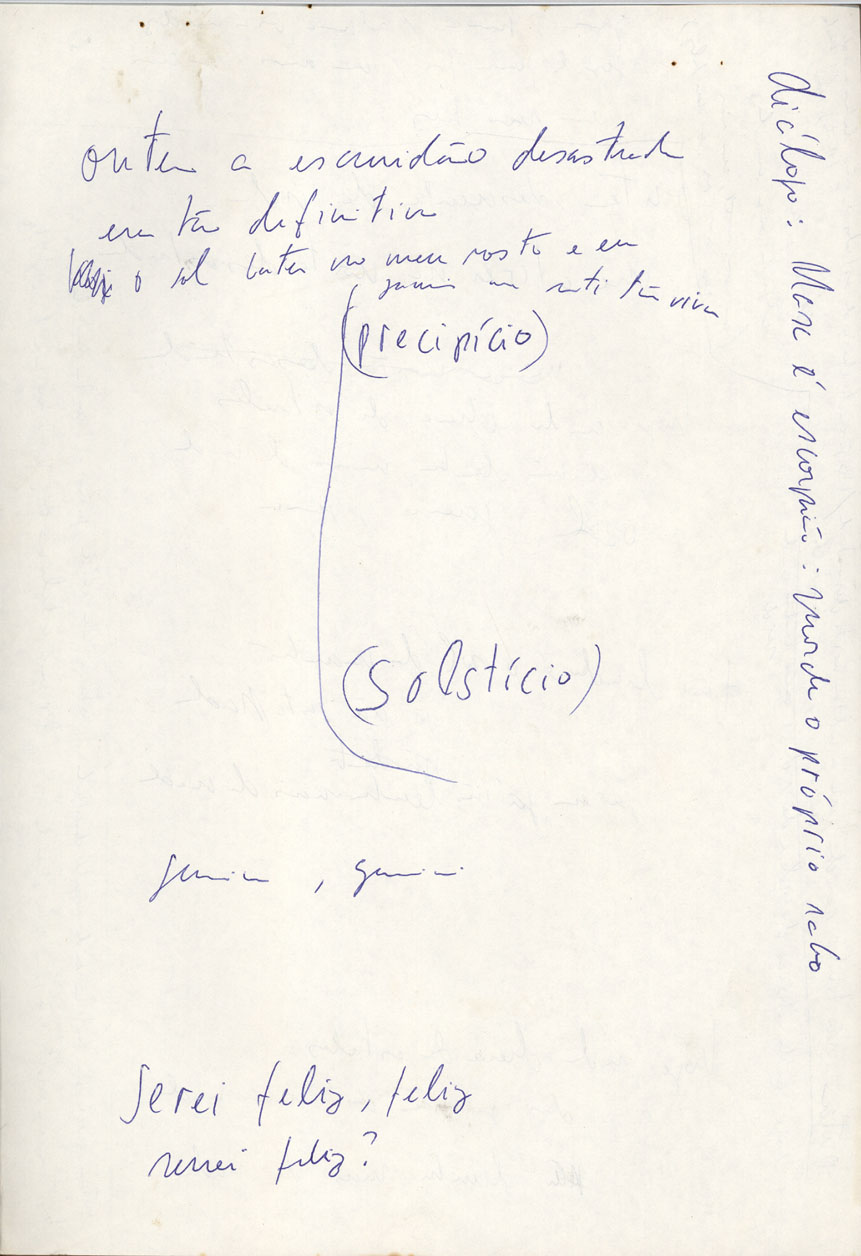 ontem a escuridão desastrada
era tão definitiva
o sol bateu no meu rosto e eu
jamais me senti tão viva
(precipício)
(Solstício)
gemini, gemini
Serei feliz, feliz
serei feliz?
diálogo: Marx é escorpião: morde o próprio rabo